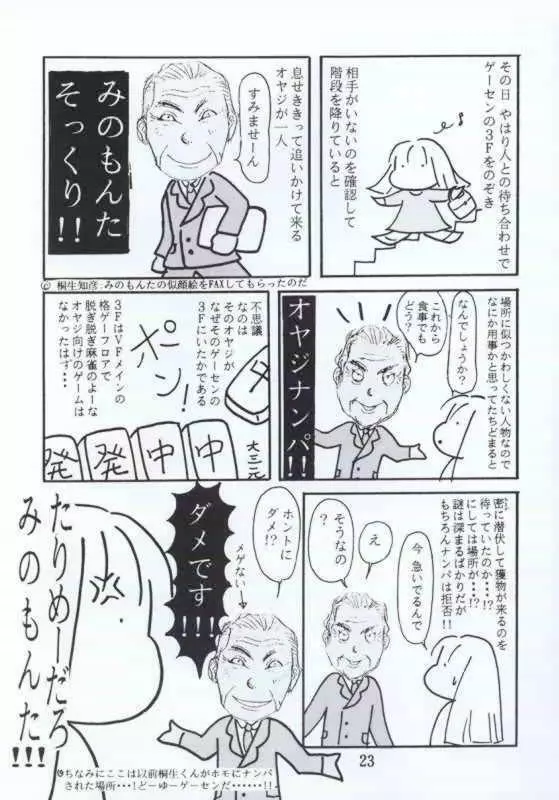 その日 やはり人との待ち合わせで
ゲーセンの3Fをのぞき
相手がいないのを確認して
階段を降りていると
息せききって追いかけて来る
オヤジが一人
すみませーん
みのもんた
そっくり!!
©桐生知彦:みのもんたの似顔絵をFAXしてもらったのだ
場所に似つかわしくない人物なので
なにか用事かと思ってたちどまると
なんでしょうか?
これから
食事でも
どう?
オヤジナンパ!!
不思議
なのは
そのオヤジが
なぜそのゲーセンの
3Fにいたかである
3FはVFメインの
格ゲーフロアで
脱ぎ脱ぎ麻雀のよーな
オヤジ向けのゲームは
なかったはず・・・
ポン!
中
発
発
中
中
大三元
密に潜伏して獲物が来るのを
待っていたのか・・・!?
にしては場所が・・・!?
謎は深まるばかりだが
もちろんナンパは拒否!!
今 急いでるんで
え
そうなの
?
ホントに
ダメ!?
メゲない→
ダメです!!!
たりめーだろ
みのもんた!!!
ちなみにここは以前桐生くんがホモにナンパ
された場所・・・!どーゆーゲーセンだ・・・・・・!!
23